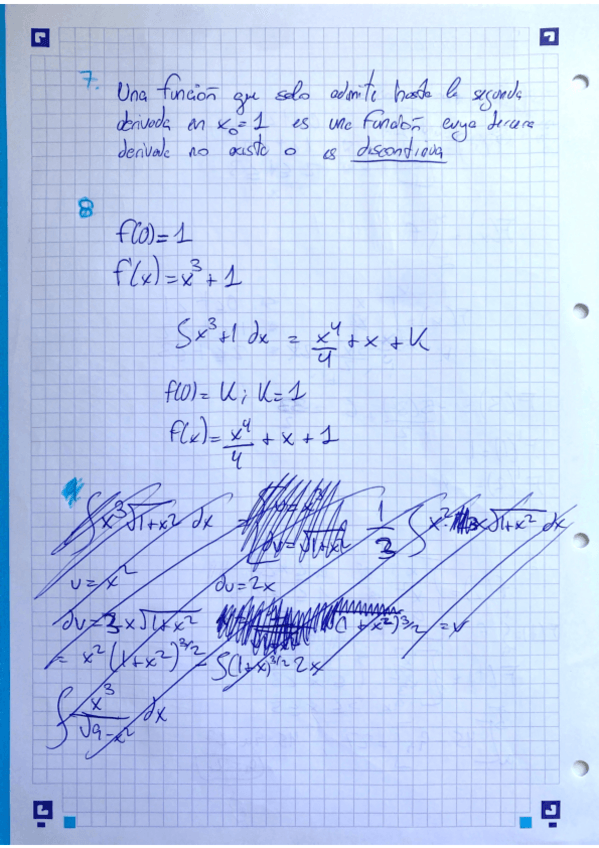 7.
Una función que solo admite hasta la segunda
derivada en x₀=1 es una función cuya tercera
derivada no existe o es discontinua
8
f(0)=1
f'(x)=x³+1
∫x³+1 dx = x⁴/4 + x + K
f(0)= K; K=1
f(x)= x⁴/4 + x + 1
∫x³√1+x² dx = u=x³ 1/3 ∫x²·3x√1+x² dx
dv=√1+x²
u=x² du=2x
dv=3x√1+x² (1+x²)^3/2 =v
= x²(1+x²)^3/2 - ∫(1+x)^3/2 2x
∫ x³/√9-x² dx